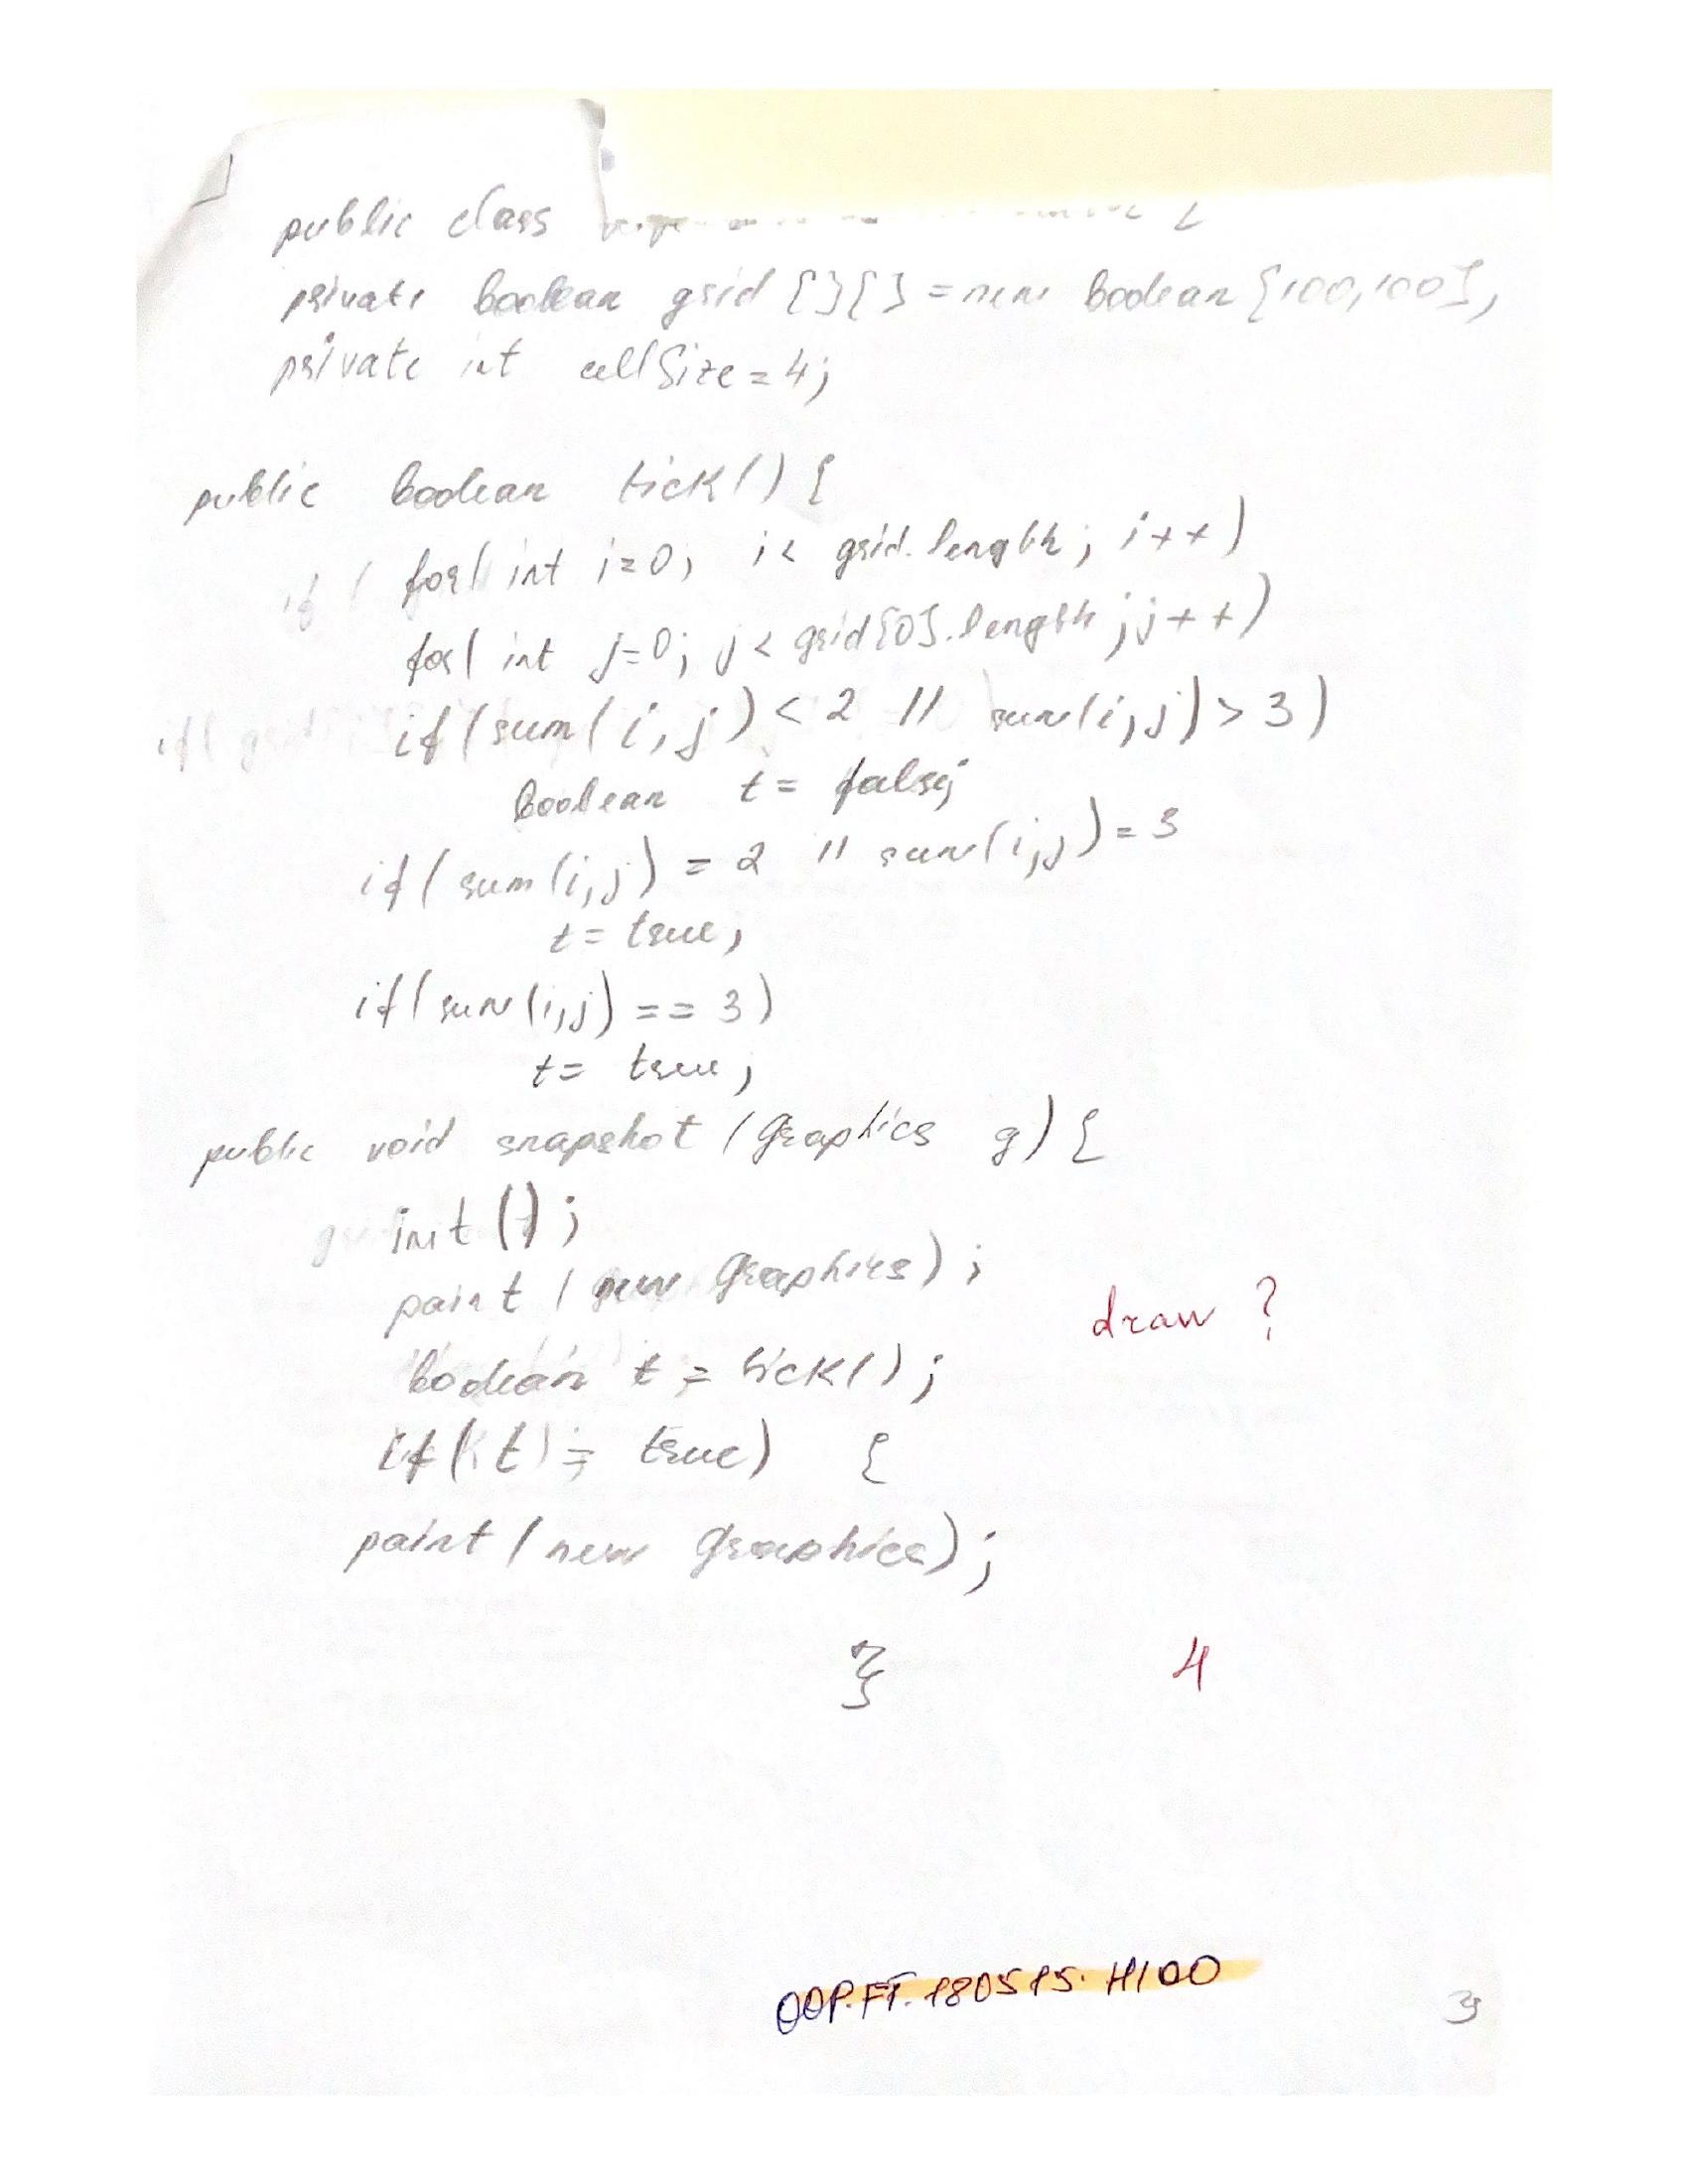 public class {
private boolean grid {}{} = new boolean {100,100},
private int cellSize = 4;
public boolean tick() {
if ( for( int i=0; i< grid.length; i++)
for( int j=0; j< grid{0}.length; j++)
if( if (sum( i, j) < 2 || sum(i,j) > 3)
boolean t = false;
if( sum(i,j) = 2 || sum(i,j) = 3
t = true;
if( sum(i,j) == 3)
t = true;
public void snapshot (Graphics g) {
init ();
paint ( new Graphics);
draw ?
boolean t = tick();
if( t = true) {
paint ( new Graphics);
}
4
OOP.FT.180515.H100